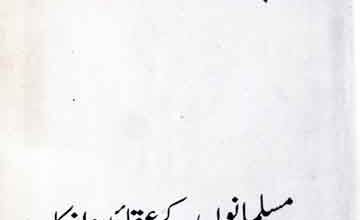 مسلمانوں کے عقائد و افکار